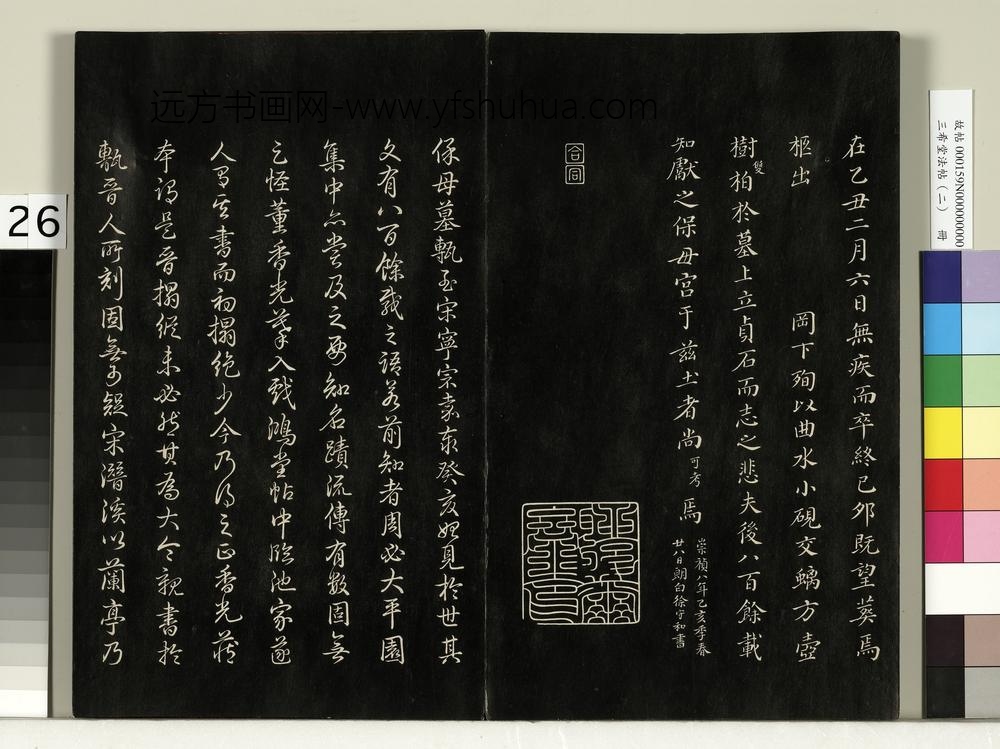 在乙丑二月六日無疾而卒終已夘既望葬焉
柩出 岡下殉以曲水小硯交螭方壺
樹雙柏於墓上立貞石而志之悲夫後八百餘載
知獻之保母宫于兹土者尚可考焉
崇禎八年乙亥季春
廿八日朗白徐守和書
合同
保母墓甎至宋寧宗嘉泰癸亥始見於世其
文有八百餘載之語若前知者周必大平園
集中亦嘗及之要知名蹟流傳有數固無
足怪董香光摹入戲鴻堂帖中臨池家遂
人男其書而初搨絶少今乃得之正香光藏
本謂是晉搨縱未必然其為大令親書於
甎晉人所刻固無可疑宋潛溪以蘭亭乃
远方书画网-www.yfshuhua.com
故帖 000159N000000000
三希堂法帖（二） 冊
26